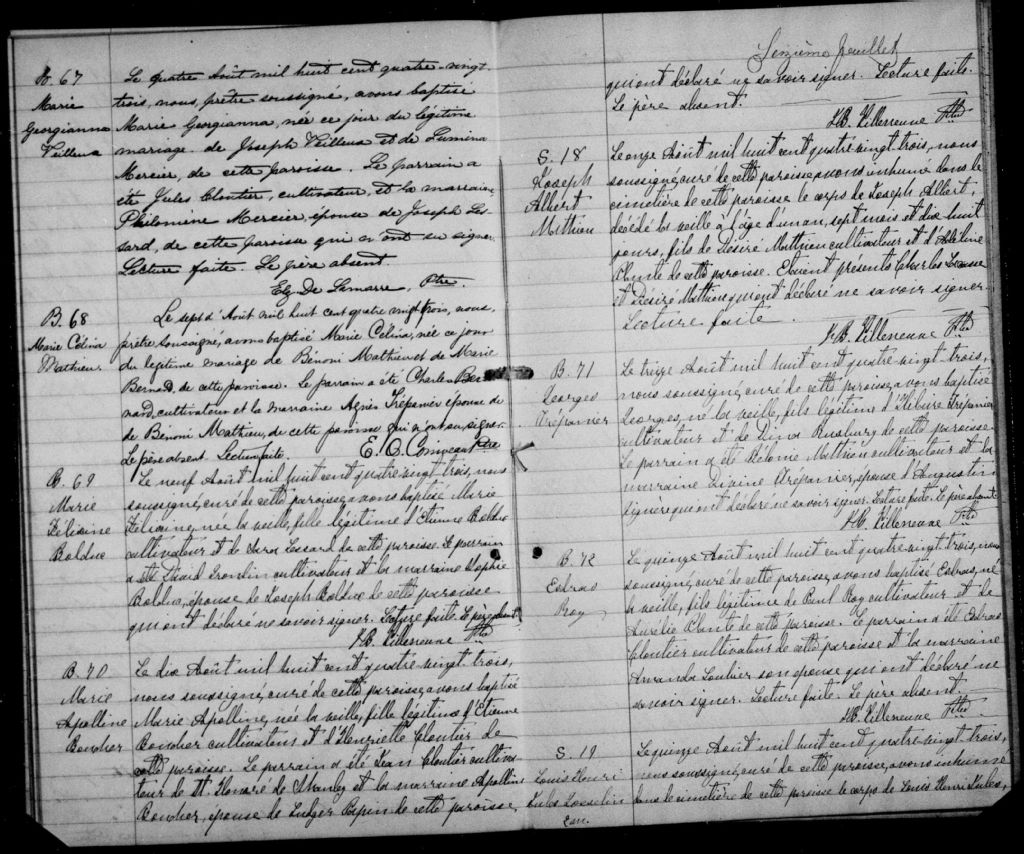 B. 67
Marie
Georgianna
Veilleux
Le quatre Août mil huit cent quatre-vingt
trois, nous, prêtre soussigné, avons baptisé
Marie Georgianna, née ce jour du légitime
mariage de Joseph Veilleux et de Lumina
Mercier, de cette paroisse. Le parrain a
été Jules Cloutier, cultivateur, et la marraine
Philomène Mercier, épouse de Joseph Les-
sard, de cette paroisse qui n'ont su signer.
Lecture faite. Le père absent.
Elz. De Lamarre, Ptre.
B. 68
Marie Célina
Mathieu
Le sept d'Août mil huit cent quatre vingt trois, nous,
prêtre soussigné, avons baptisé Marie Célina, née ce jour
du légitime mariage de Bénoni Mathieu et de Marie
Bernard de cette paroisse. Le parrain a été Charles Ber
nard, cultivateur et la marraine Agnès Trépanier épouse de
de Bénoni Mathieu, de cette paroisse qui n'ont su signer.
Le père absent. Lecture faite. E. O. Ptre
B. 69
Marie
Félixine
Bolduc
Le neuf Août mil huit cent quatre vingt trois, nous
soussigné, curé de cette paroisse, avons baptisé Marie
Félixine, née la veille, fille légitime d'Etienne Bolduc
cultivateur et de Sara Lessard de cette paroisse. Le parrain
a été David Grondin cultivateur et la marraine Sophie
Bolduc, épouse de Joseph Bolduc de cette paroisse
qui ont déclaré ne savoir signer. Lecture faite. Le père absent.
H.B. Villeneuve Ptre
B. 70
Marie
Apolline
Boucher
Le dix Août mil huit cent quatre vingt trois,
nous soussigné, curé de cette paroisse, avons baptisé
Marie Apolline, née la veille, fille légitime d'Etienne
Boucher cultivateur et d'Henriette Cloutier de
cette paroisse. Le parrain a été Jean Cloutier cultiva-
teur de St Honoré de Shenley et la marraine Apolline
Boucher, épouse de Ludger Pépin de cette paroisse,
Seizième feuillet
qui ont déclaré ne savoir signer. Lecture faite.
Le père absent.
H.B. Villeneuve Ptre
S. 18
Joseph
Albert
Mathieu
Le onze Août mil huit cent quatre vingt trois, nous
soussigné, curé de cette paroisse, avons inhumé dans le
cimetière de cette paroisse le corps de Joseph Albert,
décédé la veille à l'âge d'un an, sept mois et dix huit
jours, fils de Désiré Mathieu cultivateur et d'
de cette paroisse. Etaient présents Charles
et Désiré Mathieu qui ont déclaré ne savoir signer.
Lecture faite
H.B. Villeneuve Ptre
B. 71
Georges
Trépanier
Le treize Août mil huit cent quatre vingt trois,
nous soussigné, curé de cette paroisse, avons baptisé
Georges, né la veille, fils légitime d'Elibure Trépanier
cultivateur et de Dina de cette paroisse
Le parrain a été Mathieu cultivateur et la
marraine Divine Trépanier, épouse d'Augustin
qui ont déclaré ne savoir signer. Lecture faite. Le père absent
H.B. Villeneuve Ptre
B. 72
Esdras
Roy
Le quinze Août mil huit cent quatre vingt trois, nous
soussigné, curé de cette paroisse, avons baptisé Esdras, né
la veille, fils légitime de Paul Roy cultivateur et de
Aurélie de cette paroisse. Le parrain a été Esdras
Cloutier cultivateur de cette paroisse et la marraine
Amanda Loubier son épouse qui ont déclaré ne
savoir signer. Lecture faite. Le père absent.
H.B. Villeneuve Ptre
S. 19
Louis Henri
Jules Josselin
Le quinze Août mil huit cent quatre vingt trois,
nous soussigné, curé de cette paroisse, avons inhumé
dans le cimetière de cette paroisse le corps de Louis Henri Jules,